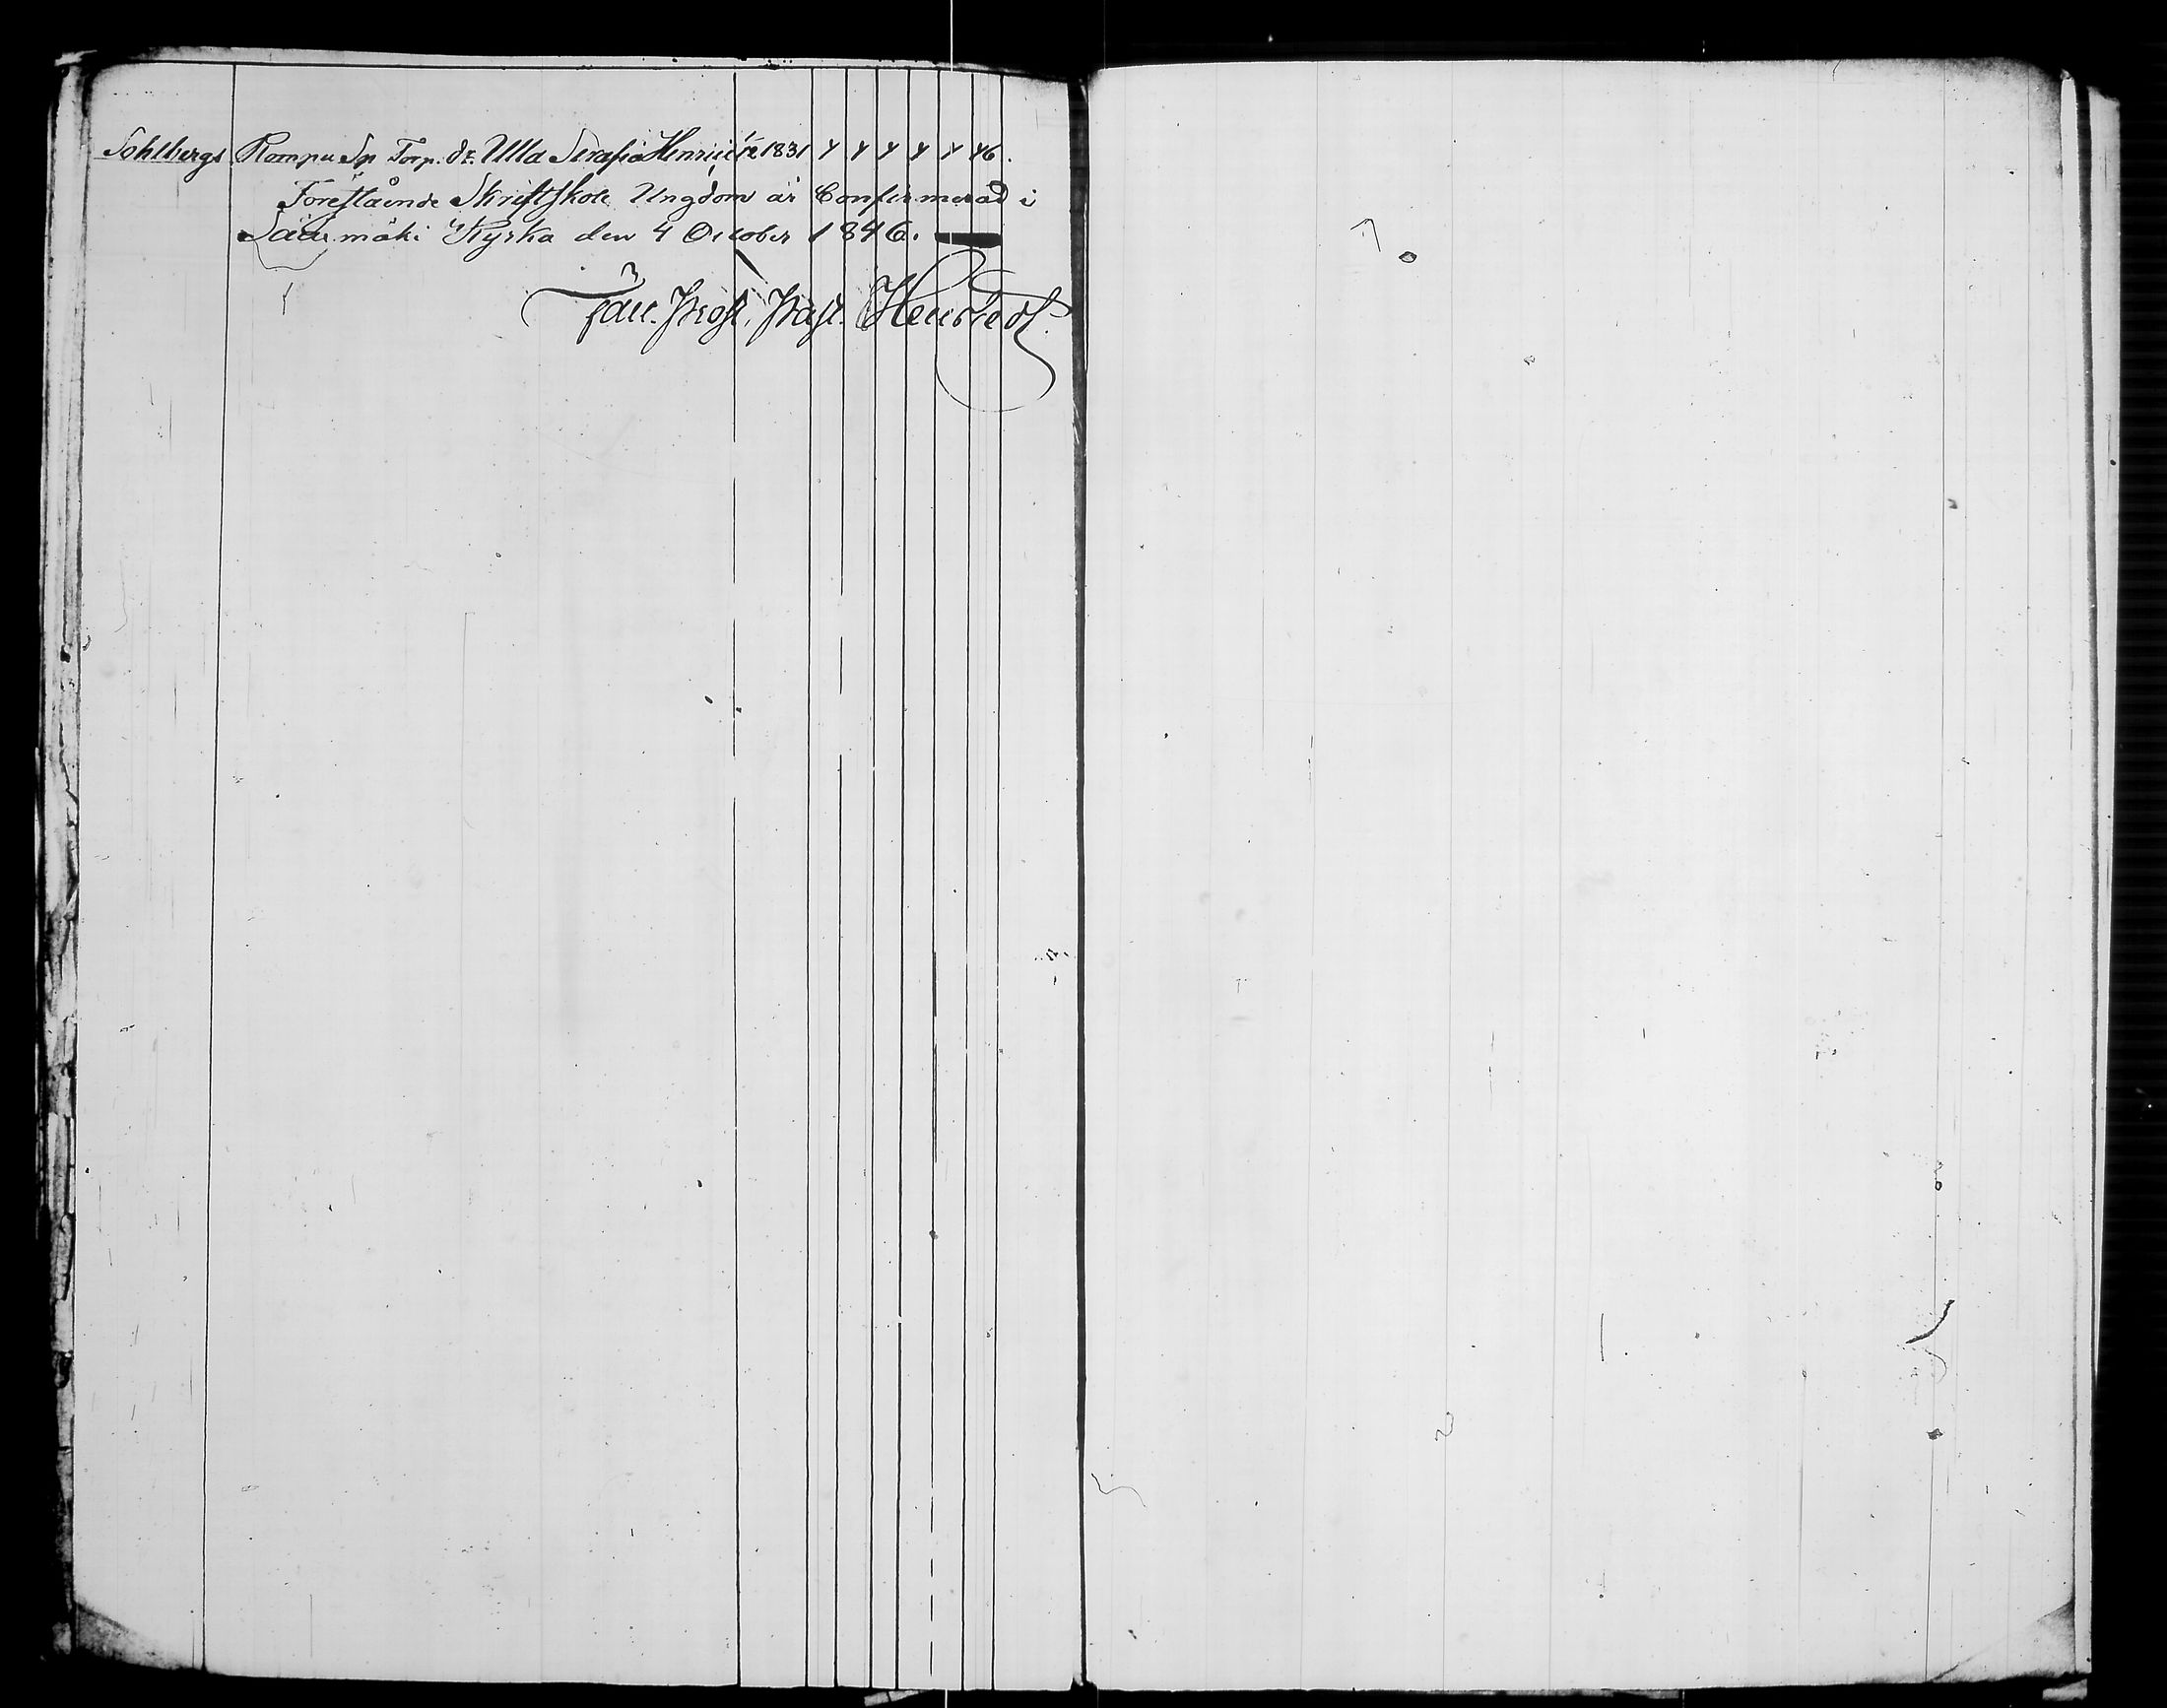 Sohlbergs Rompu Sn Torp. dr. Ulla Serafia Henric 1/12 1831 y y y y y 46.
Föreslående Skriftskole Ungdom är Confirmerad i
Sääxmäki Kyrka den 4 October 1846.
Prost,